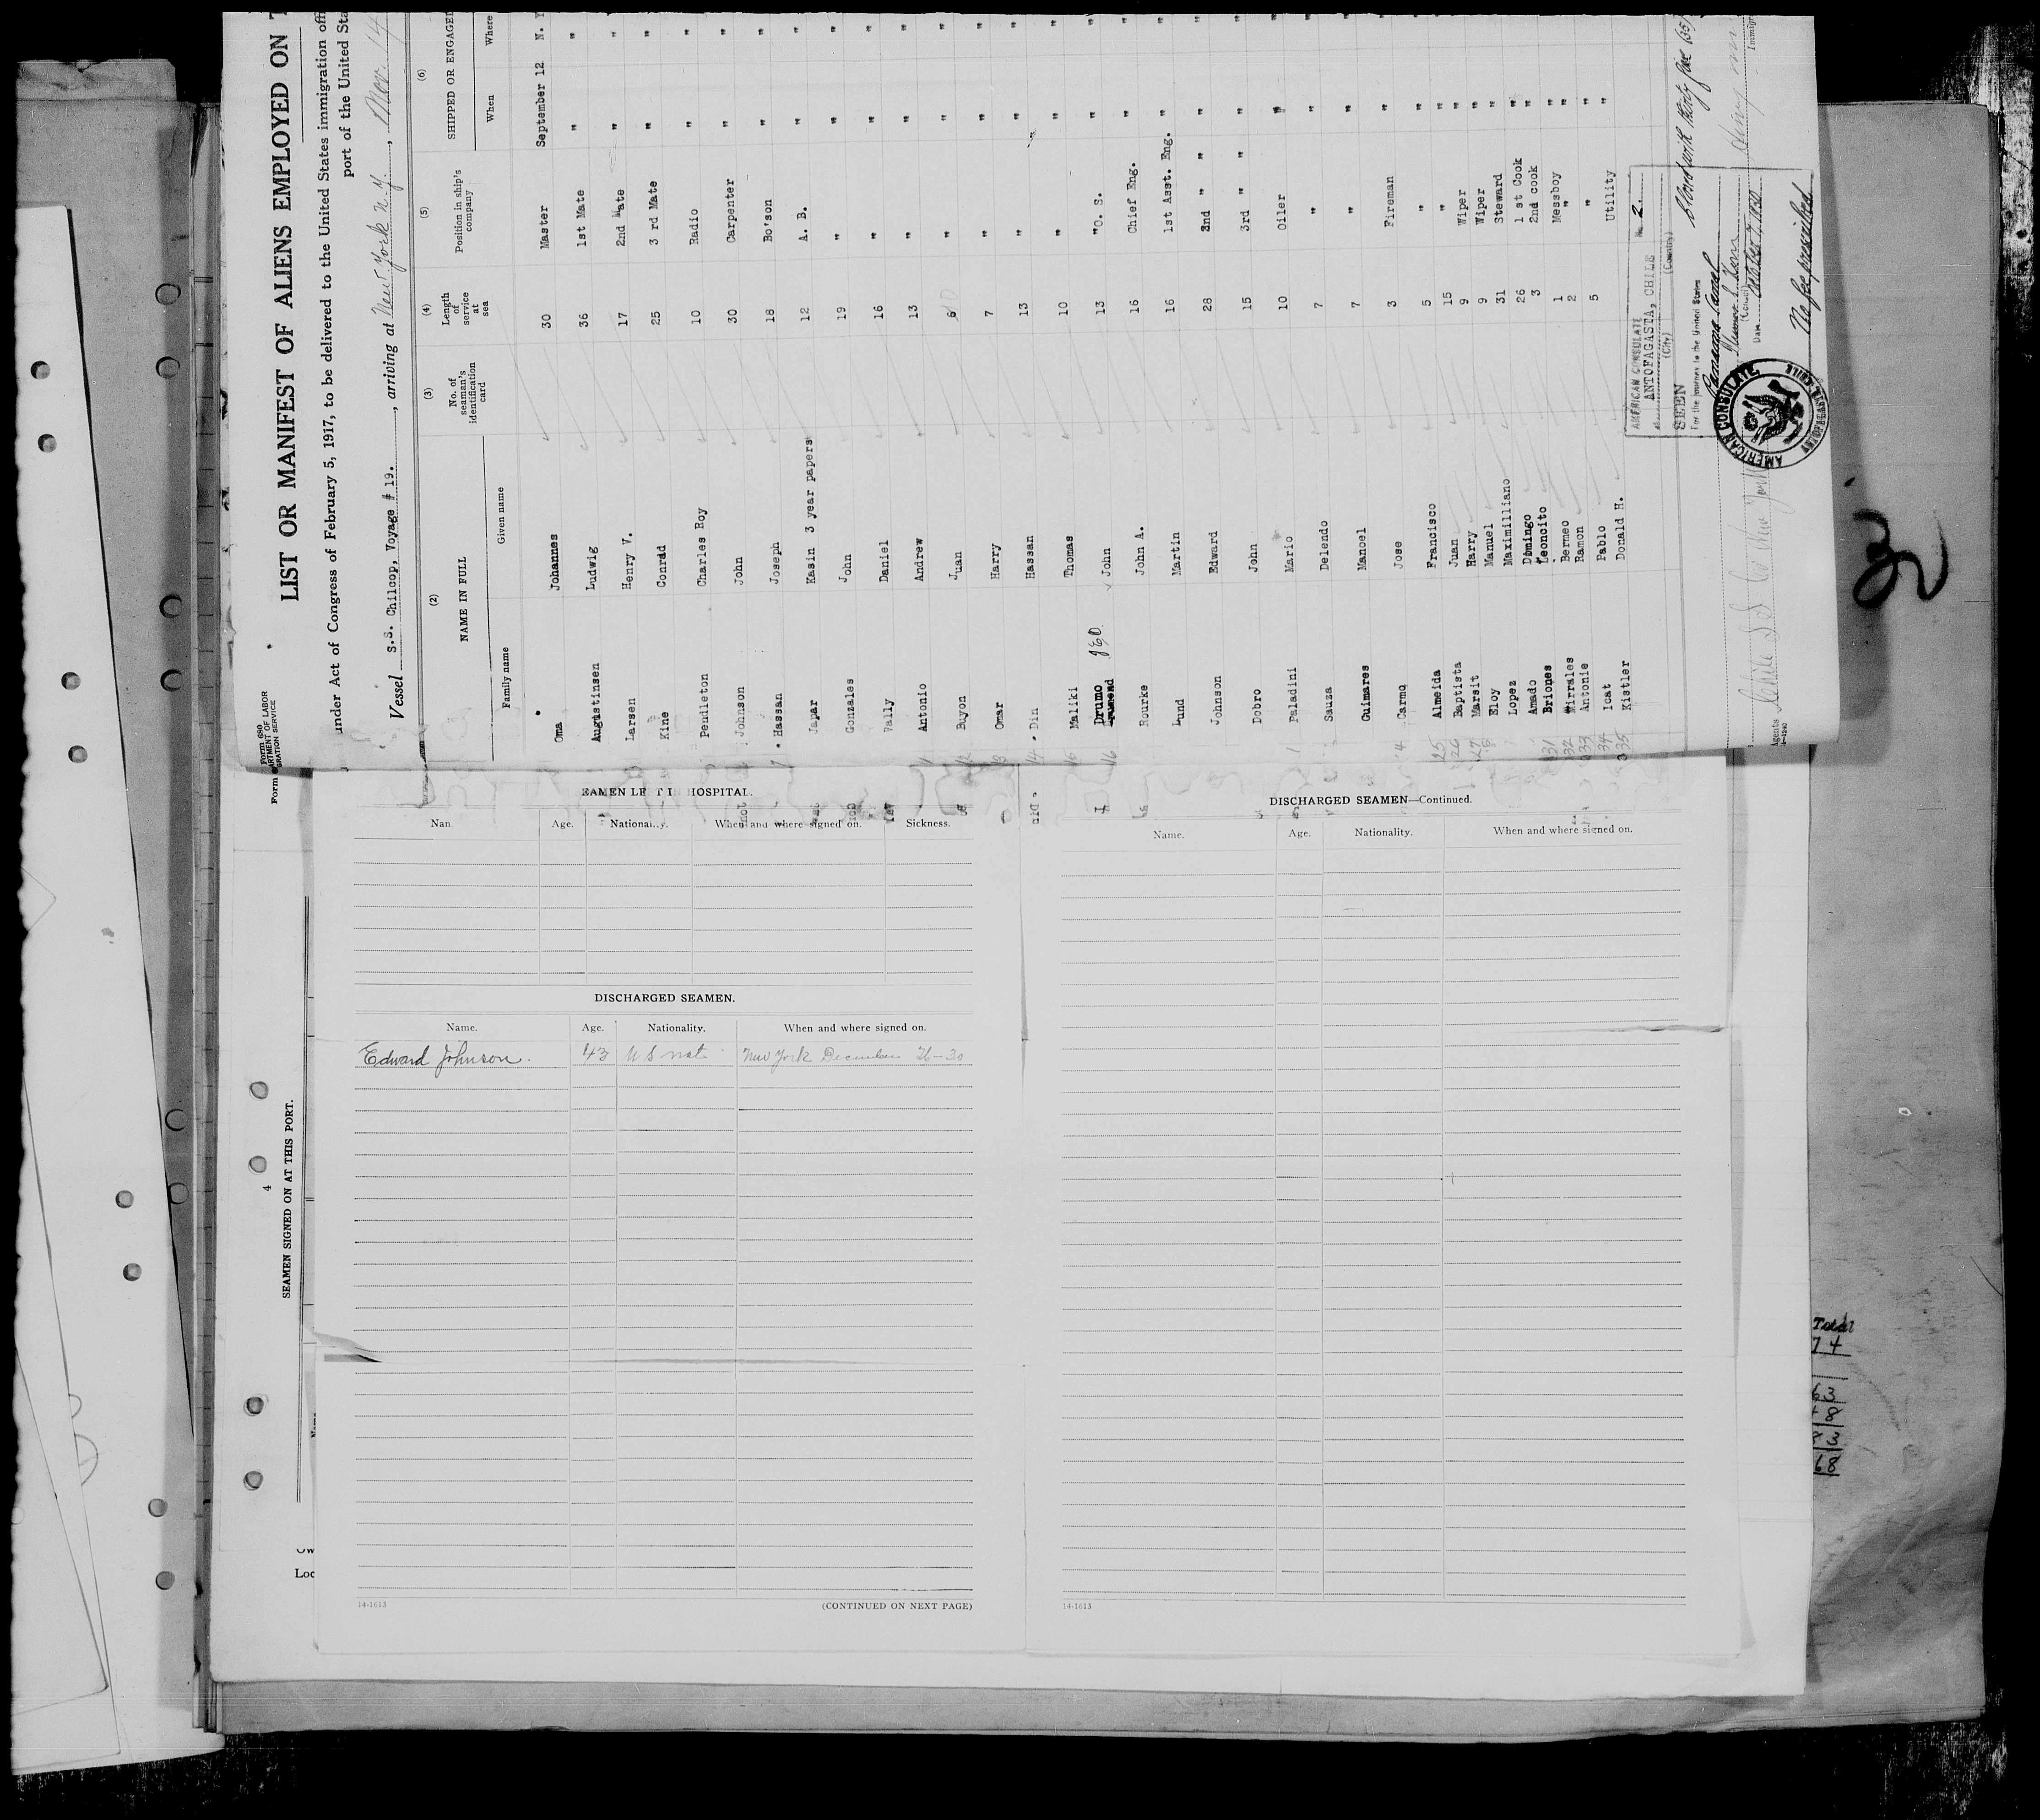 Form 686
DEPARTMENT OF LABOR
IMMIGRATION SERVICE
LIST OR MANIFEST OF ALIENS EMPLOYED ON
under Act of Congress of February 5, 1917, to be delivered to the United States immigration
port of the United
Vessel S.S. Chilcop, Voyage # 19. , arriving at New York N.Y. , Nov. 14
(2) (3) (4) (5) (6)
NAME IN FULL No. of seaman's identification card Length of service at sea Position in ship's company SHIPPED OR ENGAGED
Family name Given name When Where
Oma Johannes 30 Master September 12 N. Y
Augustinsen Ludwig 36 1st Mate " "
Larsen Henry V. 17 2nd Mate " "
Kine Conrad 25 3 rd Mate " "
Pendleton Charles Roy 10 Radio " "
Johnson John 30 Carpenter " "
Hassan Joseph 18 Bo'son " "
Japar Kasin 3 year papers 12 A. B. " "
Gonzales John 19 " " "
Vally Daniel 16 " " "
Antonio Andrew 13 " " "
Buyon Juan 6 " " "
Omar Harry 7 " " "
Din Hassan 13 " " "
Maliki Thomas 10 " " "
Druno John 13 "O. S. " "
Rourke John A. 16 Chief Eng. " "
Lund Martin 16 1st Asst. Eng. " "
Johnson Edward 28 2nd " " " "
Dobro John 15 3rd " " " "
Paladini Mario 10 Oiler " "
Sauza Delendo 7 " " "
Guimares Manoel 7 " " "
Carmo Jose 3 Fireman " "
Almeida Francisco 5 " "
Baptista Juan 15 " "
Marsit Harry 9 Wiper "
Eloy Manuel 9 Wiper "
Lopez Maximilliano 31 Steward "
Amado Domingo 26 1 st Cook "
Briones Leoncito 3 2nd cook "
Mirrales Bermeo 1 Messboy "
Antonie Ramon 2 " "
Icat Pablo 5 " "
Kistler Donald H. Utility "
AMERICAN CONSULATE
ANTOFAGASTA, CHILE
(City) (Country)
No. 2.
SEEN
For the journey to the United States
Panama Canal
Date October 7, 1930
No fee prescribed
AMERICAN CONSULATE
Agents
SEAMEN LEFT IN HOSPITAL.
Age. Nationality. When and where signed on. Sickness.
DISCHARGED SEAMEN.
Name. Age. Nationality. When and where signed on.
Edward Johnson. 43 U S nat. New York December 26-30
14-1613 (CONTINUED ON NEXT PAGE)
DISCHARGED SEAMEN—Continued.
Name. Age. Nationality. When and where signed on.
14-1613
4
SEAMEN SIGNED ON AT THIS PORT.
Loc
Total
74